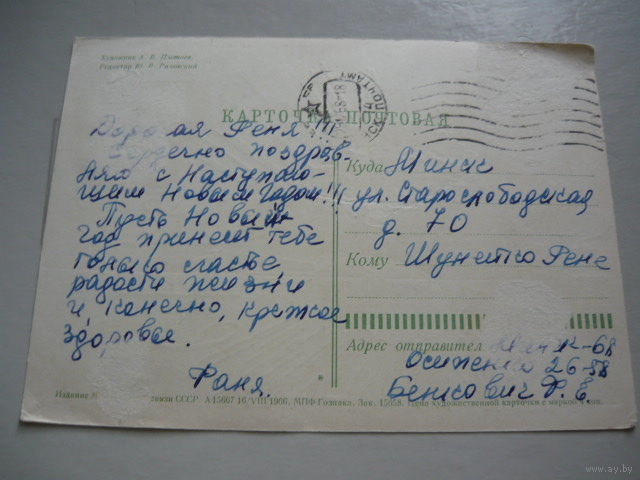 Художник А. В. Плетнев.
Редактор Ю. В. Рыловский
КАРТОЧКА ПОЧТОВАЯ
Дорогая Феня!!!
Сердечно поздрав-
ляю с Наступаю-
щим Новым Годом!!!
Пусть Новый
год принесёт тебе
только счастье
радости жизни
и, конечно, крепкое
здоровье.
Фаня.
Куда Минск
ул. Старослободская
д. 70
Кому Шунейко Фене
Адрес отправител Минск-68
26-58
Бенисович Ф. Е.
Издание связи СССР. А 15667 16/VIII 1966. МПФ Гознака. Зак. 15658. Цена художественной карточки с маркой 4 коп.
www.ay.by